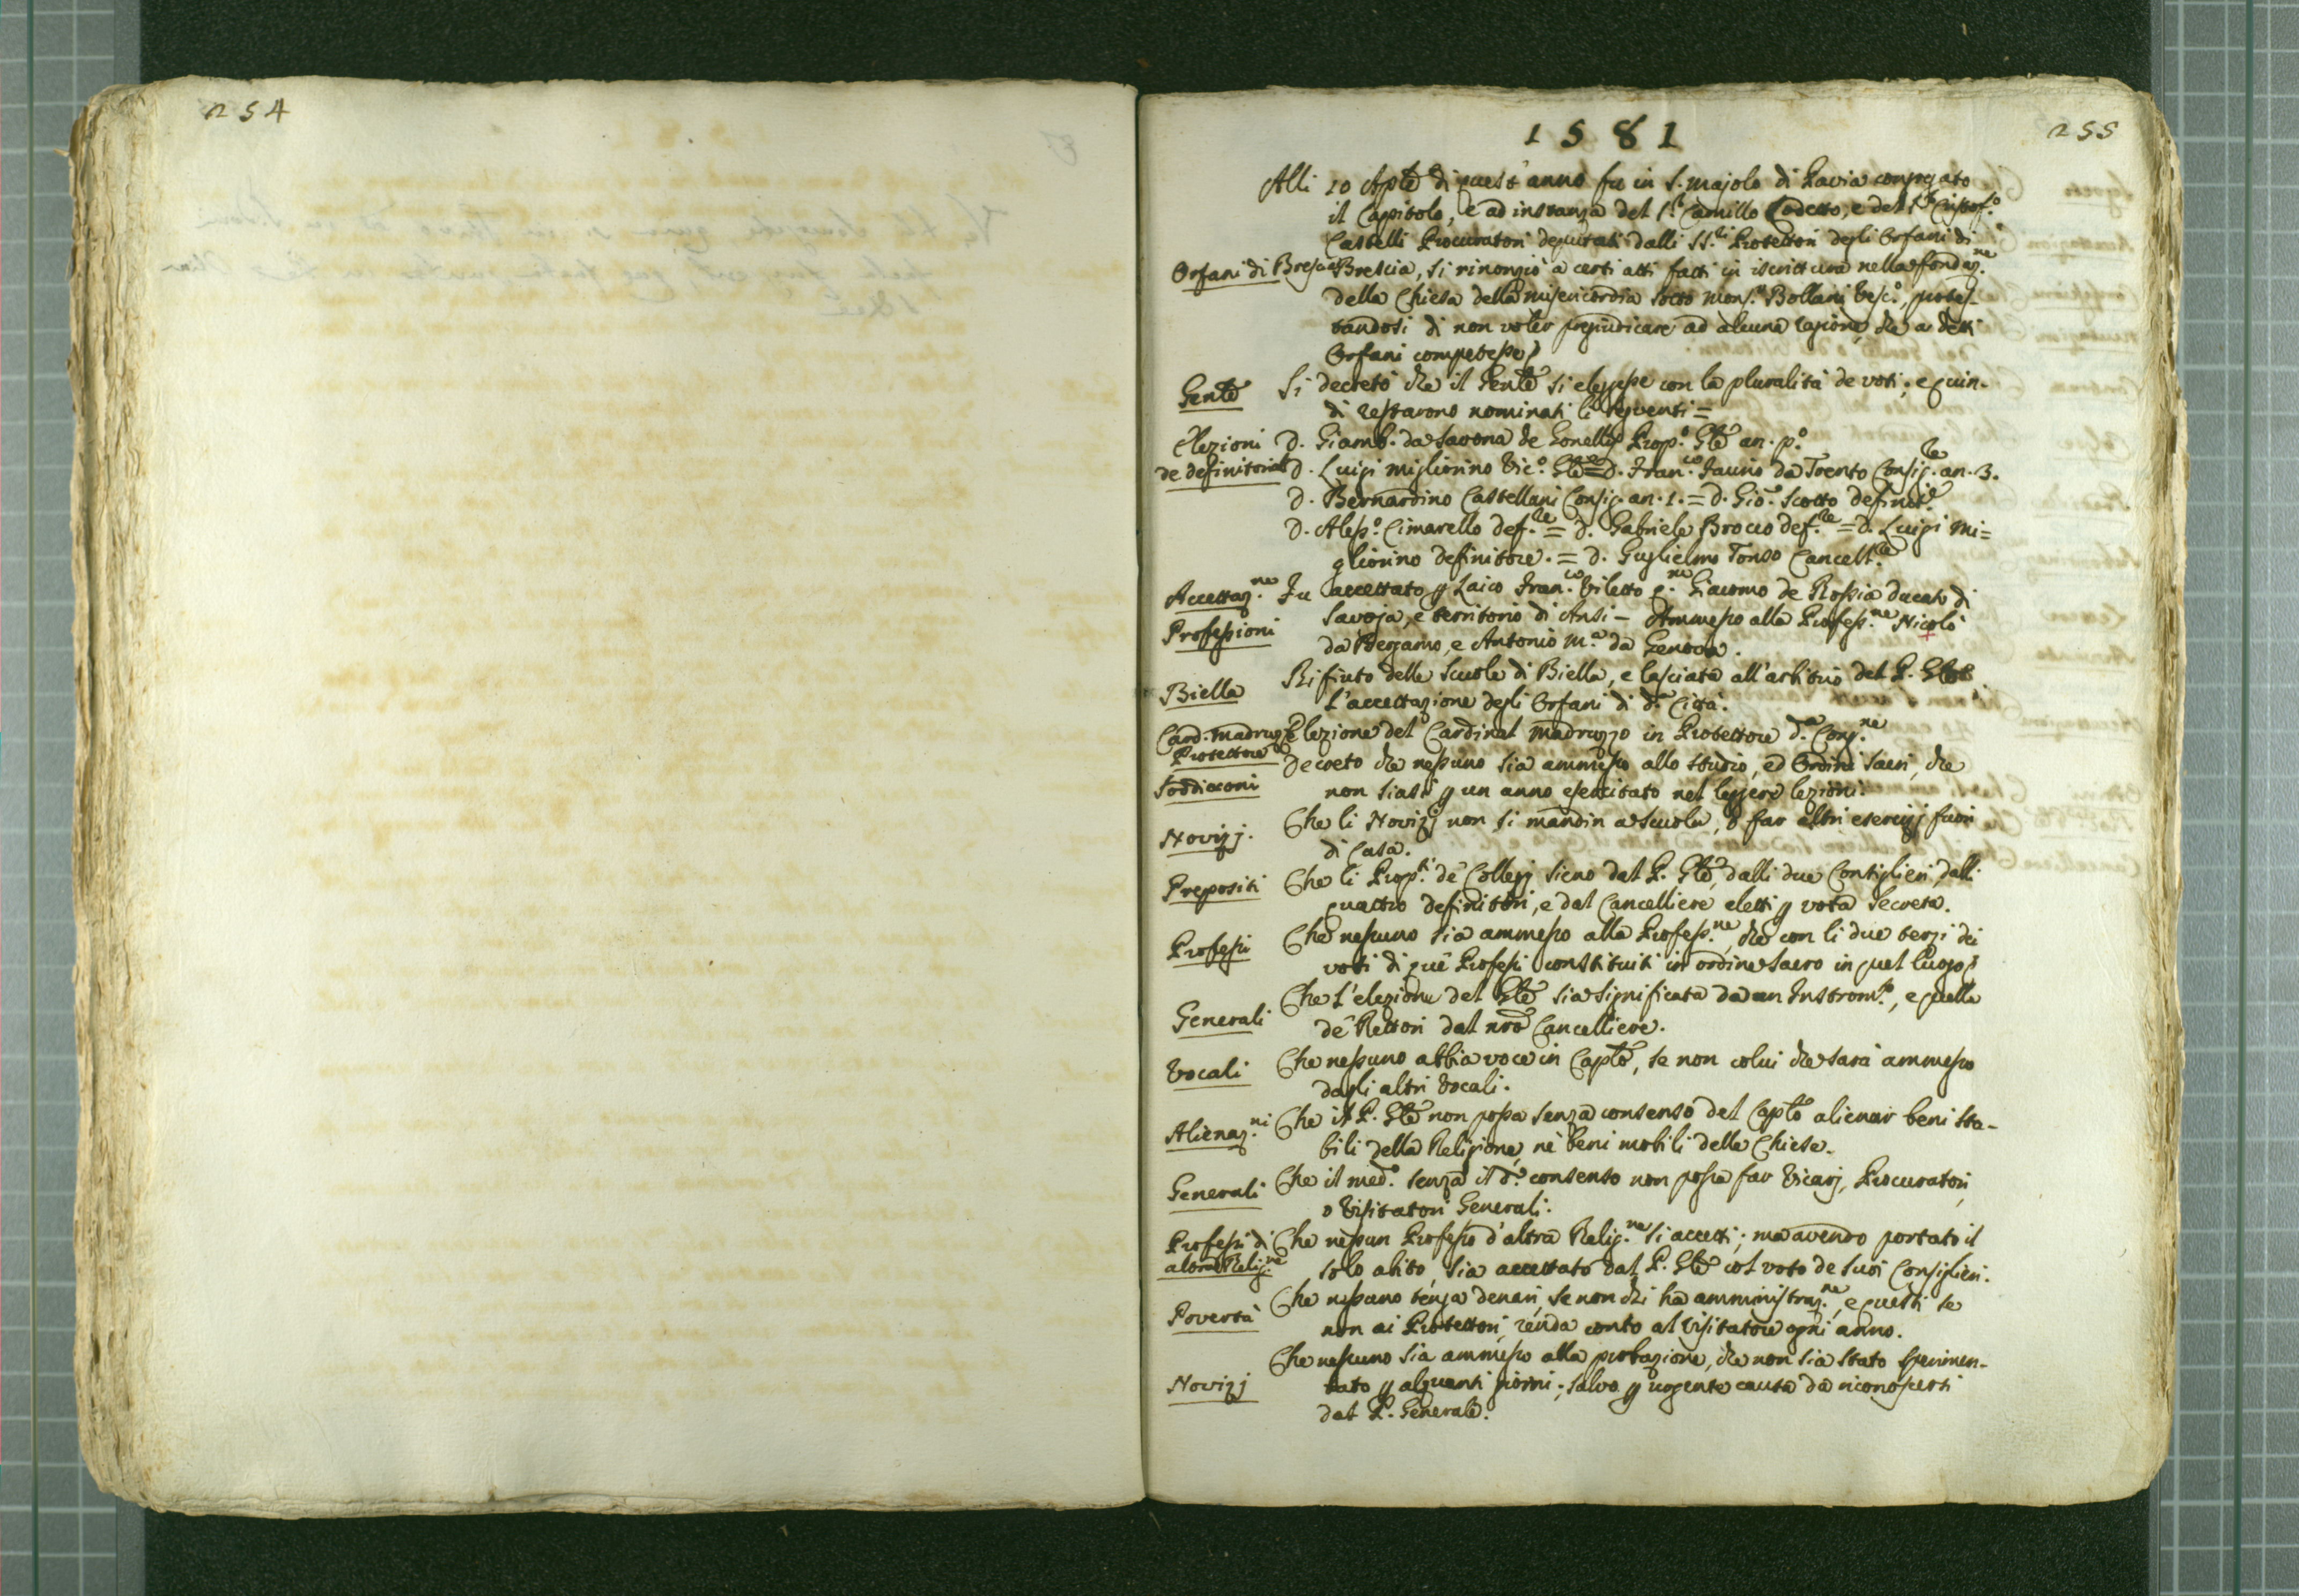 254
255
1581
Alli 10 Aple di quest'anno fu in S. Majolo di Pavia congregato
il Capitolo, e ad instanza del S.r Camillo Codetto, e del S.r Cristof.o
Castelli Procuratori deputati dalli SS.ri Protettori degli Orfani di
Orfani di Brescia Brescia, si rinonziò a certi atti fatti in iscrittura nella fondaz.ne
della Chiesa della Misericordia sotto Mons.r Bollani Vesc.o, protes-
tandosi di non voler pregiudicare ad alcuna ragione, che a detti
Orfani competesse
Genle Si decretò che il Genle si eleggesse con la pluralità de voti; e quin-
di restarono nominati li seguenti =
Elezioni D. Giamb. da Savona de Gonellis Prop.o Gle an. p.o
de definitorial D. Luigi Migliorino Vic.o Gle = D. Fran.co Fauno da Trento Consig.le an. 3.
D. Bernardino Castellani Consig. an. 1. = D. Gio. Scotto definit.e
D. Aless.o Cimarello def.re = D. Gabriele Brocco def.re = D. Luigi Mi=
gliorino definitore. = D. Guglielmo Tonso Cancell.re
Accettaz.ne Fu accettato p Laico Fran.co Viletto q. Giacomo de Rossia ducato di
Professioni Savoja, e territorio di Ansi - Ammesso alla Profess.ne Nicolò
da Bergamo, e Antonio M.a da Genova.
Biella Rifiuto delle Scuole di Biella, e lasciata all'arbitrio del P. Gle
l'accettazione degli Orfani di d.a Città.
Card. Madruzzo Elezione del Cardinal Madruzzo in Protettore d.a Cong.ne
Protettore
Soddiaconi Decreto che nessuno sia ammesso allo studio, ed Ordini sacri, che
non siasi p un anno esercitato nel leggere lezioni.
Novizj. Che li Novizj non si mandin a scuola, o far altri esercizj fuori
di Casa.
Prepositi Che li Prop.ti de' Collegj sieno dal P. Gle, dalli due Consiglieri, dalli
quattro definitori, e dal Cancelliere eletti p vota secreta.
Professi Che nessuno sia ammesso alla Profess.ne, che con li due terzi dei
voti di que' Professi constituiti in ordine sacro in quel luogo
Generali Che l'elezione del Gle sia significata da un Instrom.to, e quella
de' Rettori dal nro Cancelliere.
Vocali Che nessuno abbia voce in Caplo, se non colui che sarà ammesso
dagli altri Vocali.
Alienaz.ni Che il P. Gle non possa senza consenso del Caplo alienar beni sta-
bili della Religione, nè beni mobili delle Chiese.
Generali Che il med.o senza il d.o consenso non possa far Vicarj, Procuratori,
o Visitatori Generali.
Professi di Che nessun Professo d'altra Relig.ne si accetti; ma avendo portato il
altra Relig.ne solo abito, sia accettato dal P. Gle col voto de suoi Consiglieri.
Povertà Che nessuno tenga denari, se non chi ha amministraz.ne, e questi se
non ai Protettori, renda conto al Visitatore ogni anno.
Che nessuno sia ammesso alla probazione, che non sia stato sperimen-
Novizj tato p alquanti giorni; salvo p urgente causa da riconoscersi
dal P. Generale.